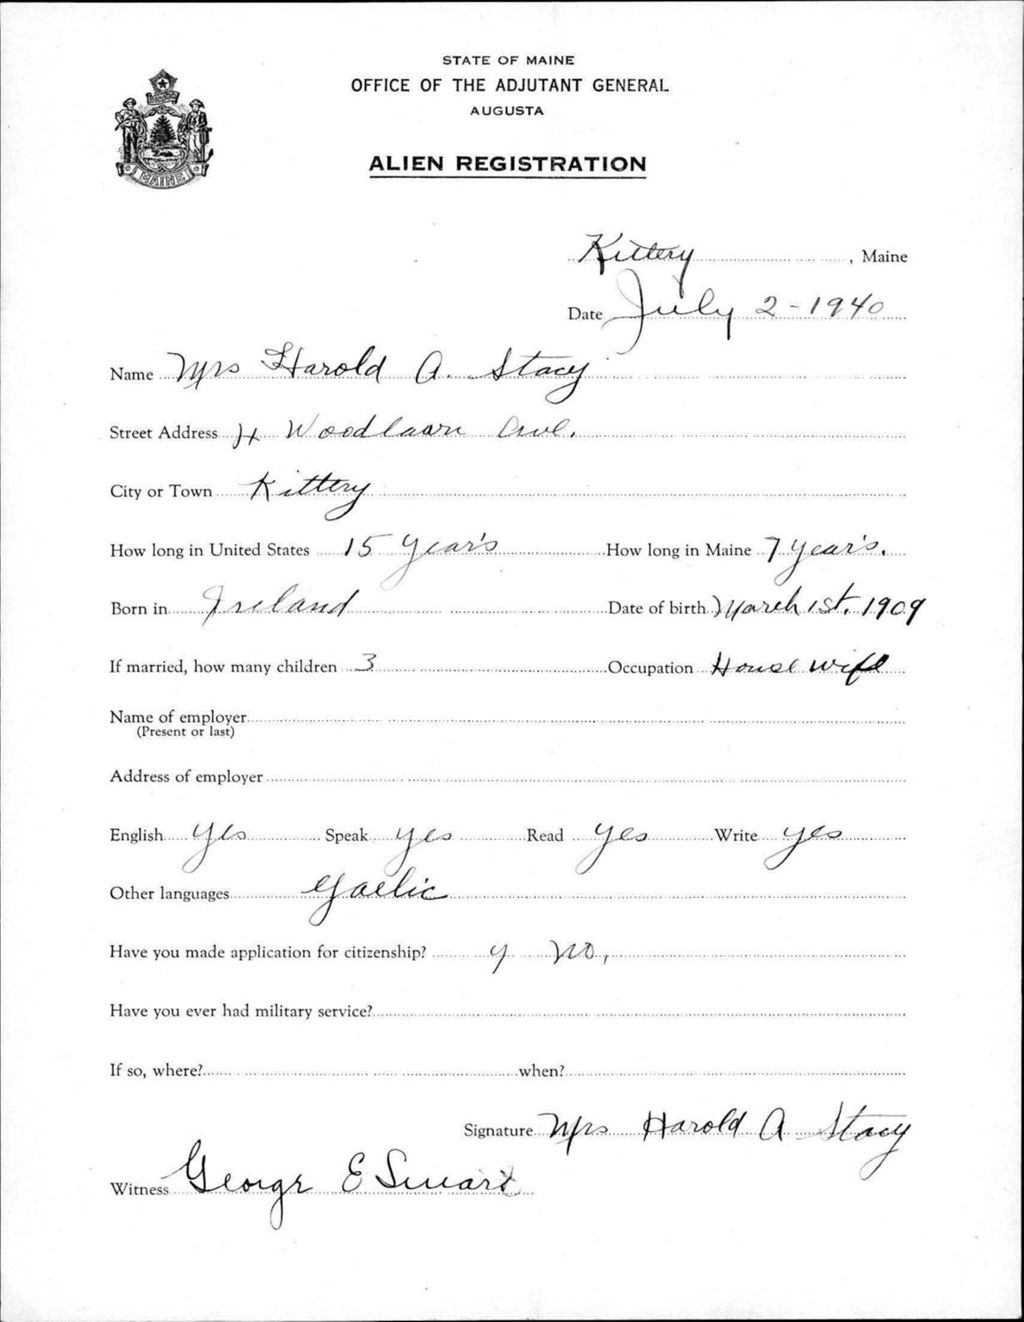 STATE OF MAINE
OFFICE OF THE ADJUTANT GENERAL
AUGUSTA
ALIEN REGISTRATION
MAINE
Kittery, Maine
Date July 2-1940
Name Mrs Harold A. Stacy
Street Address 4 Woodlawn Ave.
City or Town Kittery
How long in United States 15 Year's How long in Maine 7 year's.
Born in Ireland Date of birth March 1st, 1909
If married, how many children 3 Occupation House wife
Name of employer
(Present or last)
Address of employer
English yes Speak yes Read yes Write yes
Other languages Gaelic
Have you made application for citizenship? y no,
Have you ever had military service?
If so, where? when?
Signature Mrs Harold A Stacy
Witness George E Smart